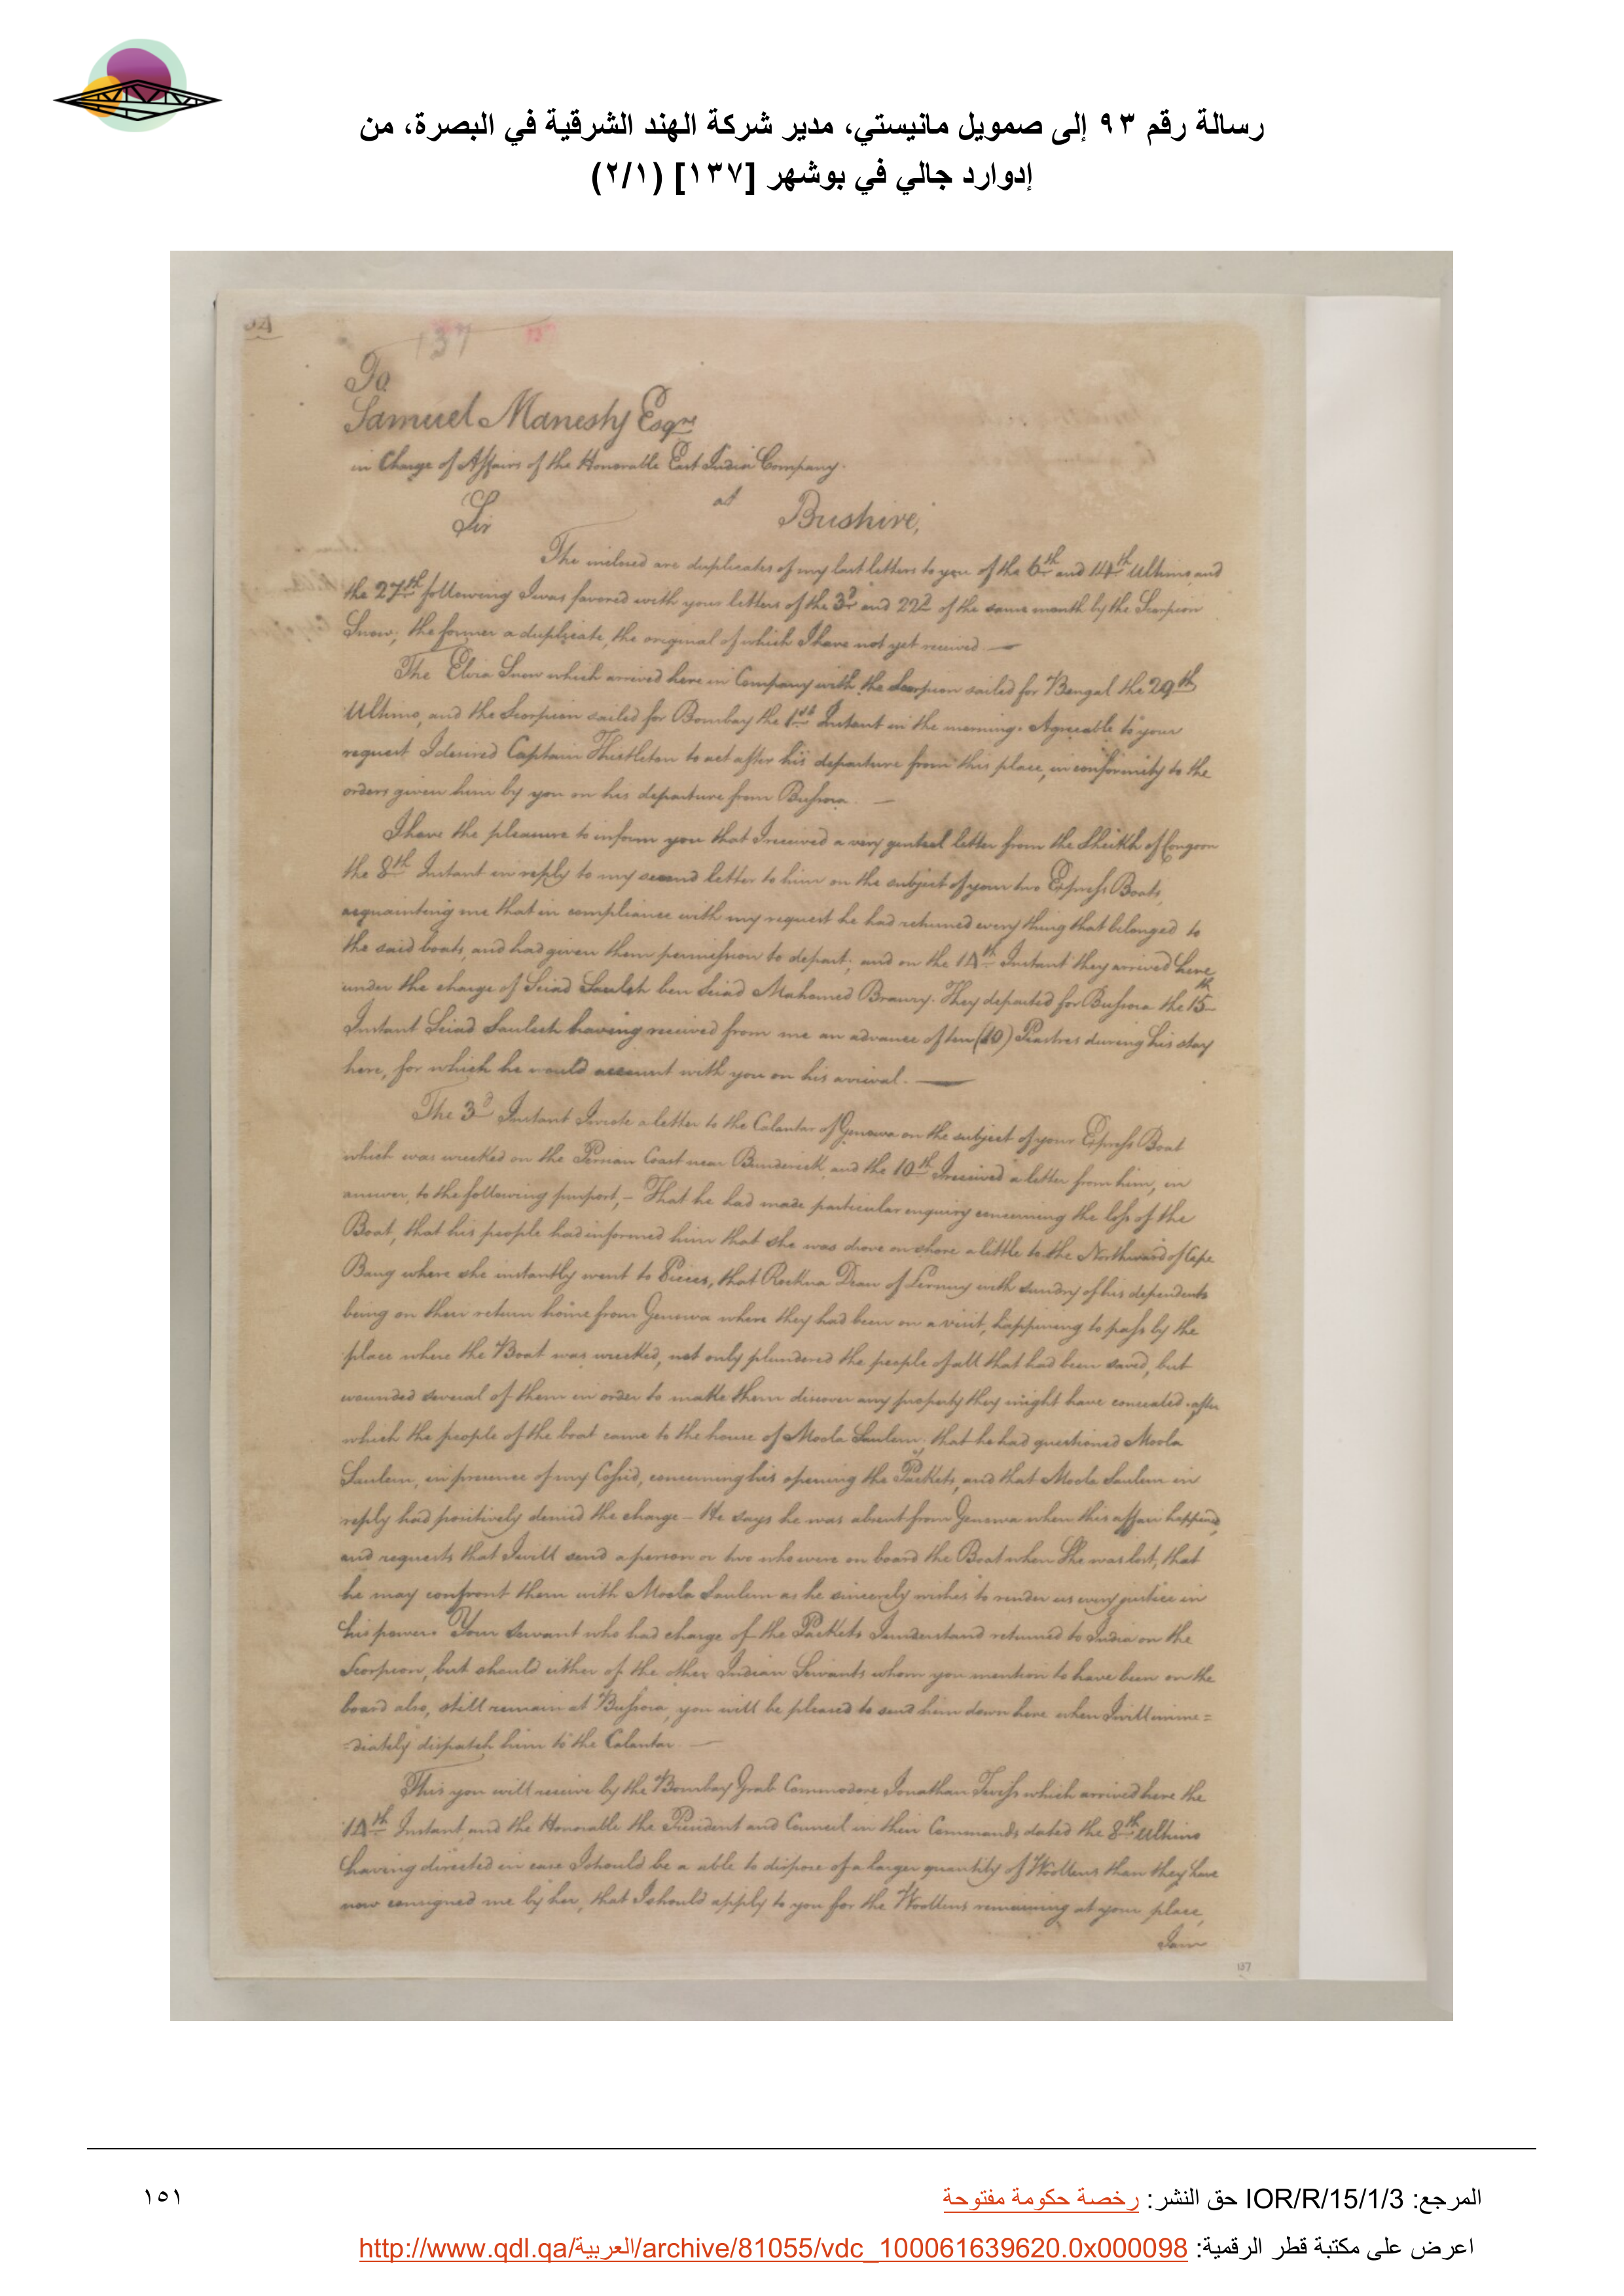 رسالة رقم ٩٣ إلى صمويل مانيستي، مدير شركة الهند الشرقية في البصرة، من
إدوارد جالي في بوشهر [١٣٧] (٢/١)
137
To
Samuel Manesty Esqre
in Charge of Affairs of the Honorable East India Company
at Bushire,
Sir
The inclosed are duplicates of my last letters to you of the 6th and 14th Ultimo and
the 27th following I was favored with your letters of the 3d and 22d of the same month by the Scorpion
Snow, the former a duplicate, the original of which I have not yet received. —
The Elvia Snow which arrived here in Company with the Scorpion sailed for Bengal the 29th
Ultimo, and the Scorpion sailed for Bombay the 1st Instant in the morning. Agreeable to your
request I desired Captain Thistleton to act after his departure from this place, in conformity to the
orders given him by you on his departure from Bussora. —
I have the pleasure to inform you that I received a very genteel letter from the Sheikh of Congoon
the 8th Instant in reply to my second letter to him on the subject of your two Express Boats,
acquainting me that in compliance with my request he had returned every thing that belonged to
the said boats, and had given them permission to depart; and on the 14th Instant they arrived here
under the charge of Seiad Sauleh ben Seiad Mahomed Braury. They departed for Bussora the 15th
Instant Seiad Sauleh having received from me an advance of ten (10) Piastres during his stay
here, for which he would account with you on his arrival. —
The 3d Instant I wrote a letter to the Calantar of Genowa on the subject of your Express Boat
which was wrecked on the Persian Coast near Bunderick, and the 10th I received a letter from him, in
answer, to the following purport, - That he had made particular enquiry concerning the loss of the
Boat, that his people had informed him that she was drove on shore a little to the Northward of Cape
Bang where she instantly went to Pieces, that Reckna Dean of Lerauy with sundry of his dependents
being on their return home from Genowa where they had been on a visit, happening to pass by the
place where the Boat was wrecked, not only plundered the people of all that had been saved, but
wounded several of them in order to make them discover any property they might have concealed after
which the people of the boat came to the house of Moola Saulem, that he had questioned Moola
Saulem, in presence of my Cossid, concerning his opening the Packets, and that Moola Saulem in
reply had positively denied the charge - He says he was absent from Genowa when this affair happened,
and requests that I will send a person or two who were on board the Boat when She was lost, that
he may confront them with Moola Saulem as he sincerely wishes to render us every justice in
his power. Your Servant who had charge of the Packets I understand returned to India on the
Scorpion, but should either of the other Indian Servants whom you mention to have been on the
board also, still remain at Bussora, you will be pleased to send him down here when I will imme=
=diately dispatch him to the Calantar. —
This you will receive by the Bombay Grab Commodore Jonathan Twiss which arrived here the
14th Instant, and the Honorable the President and Council in their Commands dated the 8th Ultimo
having directed in case I should be a able to dispose of a larger quantity of Woollens than they have
now consigned me by her, that I should apply to you for the Woollens remaining at your place,
I am
137
المرجع: IOR/R/15/1/3 حق النشر: رخصة حكومة مفتوحة
١٥١
اعرض على مكتبة قطر الرقمية: http://www.qdl.qa/العربية/archive/81055/vdc_100061639620.0x000098